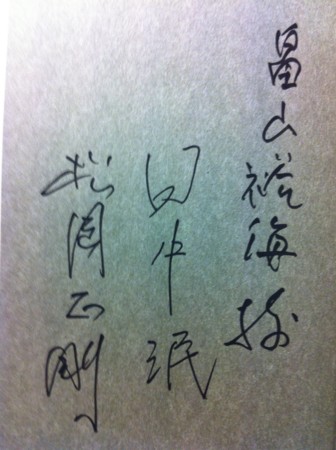 畠山裕海様
田中泯
松岡正剛